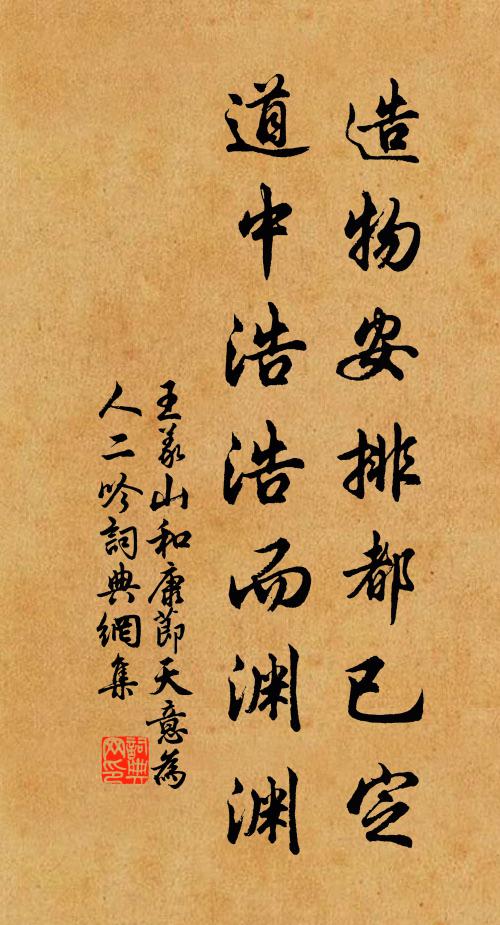 造物安排都已定
道中浩浩而渊渊
王义山和康節天意為
人二吟詞典網集
詞典
网印